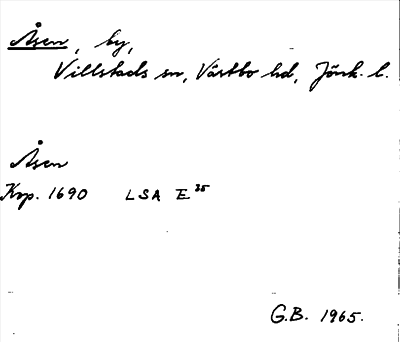 Åsen, by,
Villstads sn, Västbo hd, Jönk. l.
Åsen
Kop. 1690 LSA E 25
G.B. 1965.